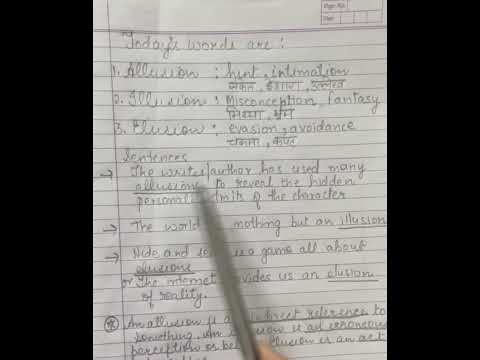 Page No.
Date
Today's words are :
1. Allusion : hint, intimation
संकेत, ईशारा, उल्लेख
2. Illusion : Misconception, Fantasy
मिथ्या, भ्रम
3. Elusion : evasion, avoidance
Sentences
→ The writer/author has used many
allusions to reveal the hidden
of the character
→ The world nothing but an illusion
→ a game all about
elusions
or The internet provides us an elusion
of reality.
An allusion is an indirect reference to
something. An illusion is an erroneous
perception or elusion is an act